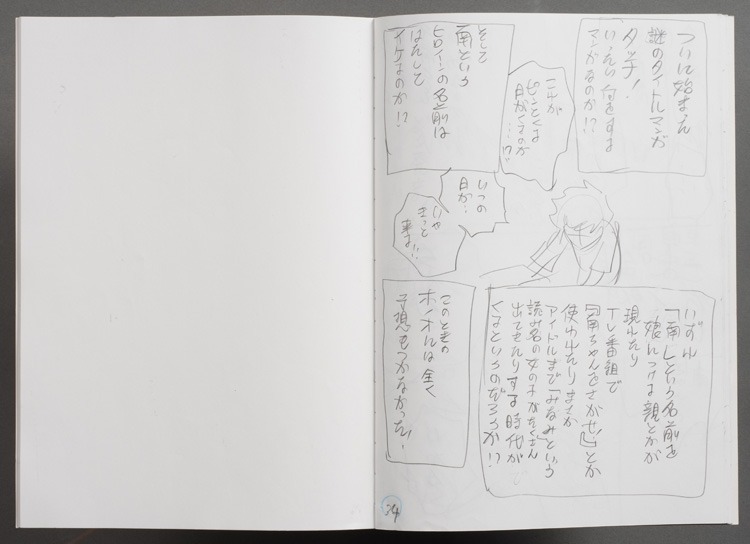 ついに始まった
謎のタイトルマンガ
タッチ!
いったい何をする
マンガなのか!?
そして
南という
ヒロインの名前は
はたして
イケてるのか!?
これが
ピンとくる
日がくるのか
…!?
いつの
日か…
いや
きっと
来る!!
いずれ
「南」という名前を
娘につける親とかが
現れたり
TV番組で
「南ちゃんをさがせ!」とか
使われたりまさか
アイドルまで「みなみ」という
読み名の女の子がたくさん
出てきたりする時代が
くるというのだろうか!?
このときの
ホノオには全く
予想もつかなかった!
34